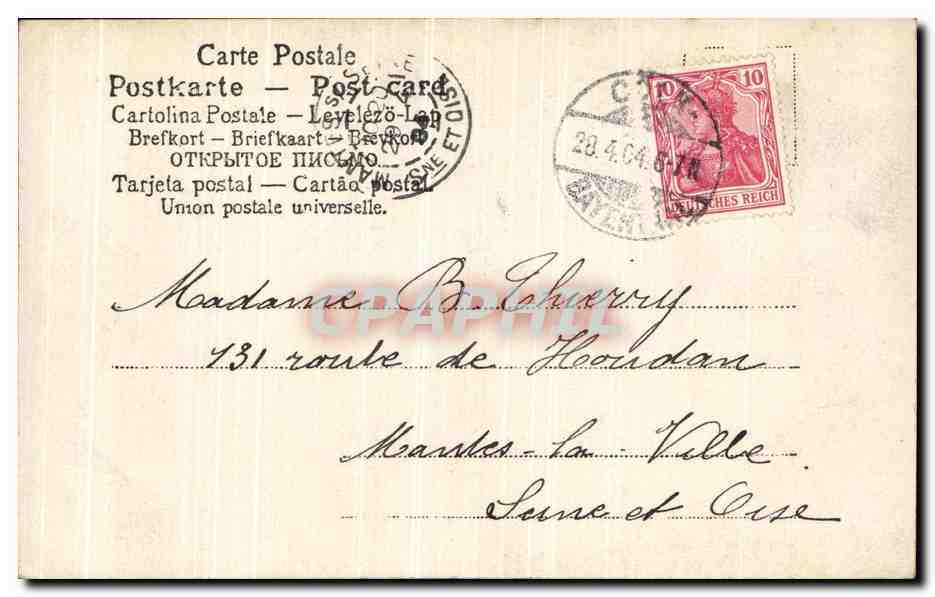 Carte Postale
Postkarte — Post card
Cartolina Postale — Levelező-Lap
Brefkort — Briefkaart — Brevkort
ОТКРЫТОЕ ПИСЬМО
Tarjeta postal — Cartão postal.
Union postale universelle.
SEINE ET OISE
28.4.04.6-7N
BAYENTHAL
10 10
DEUTSCHES REICH
Madame B. Thierry
CPAPHIL
131 route de Houdan
Mantes-la-Ville
Seine et Oise